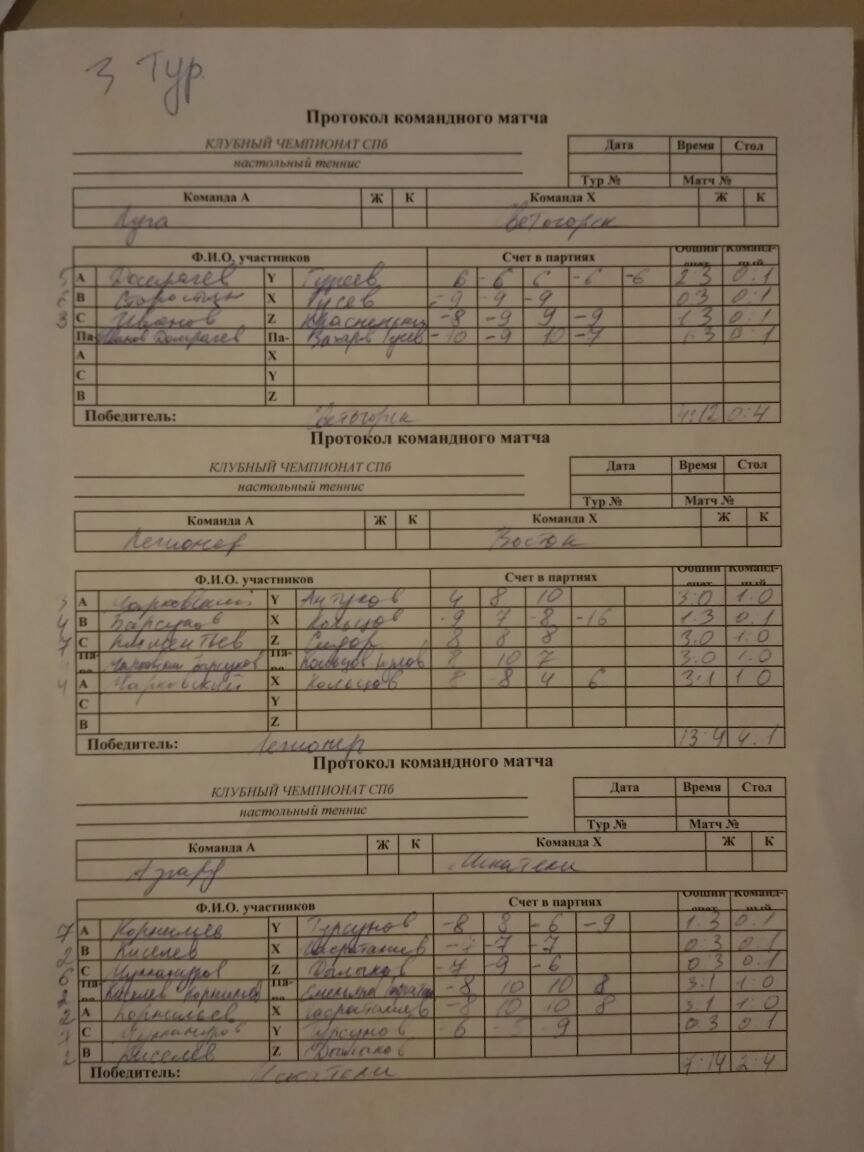 3 Тур
Протокол командного матча
КЛУБНЫЙ ЧЕМПИОНАТ СПб
настольный теннис
Дата Время Стол
Тур № Матч №
Команда А Ж К Команда Х Ж К
Луга Светогорск
Ф.И.О. участников Счет в партиях Общий счет Команд-ный
5 A Домрачев Y Гурьев 6 -6 6 -6 -6 2:3 0:1
6 B X Гусев -9 -9 -9 0:3 0:1
3 C Иванов Z -8 -9 9 -9 1:3 0:1
Па- Иванов Домрачев Па- -10 -9 10 -7 1:3 0:1
A X
C Y
B Z
Победитель: Светогорск 4:12 0:4
Протокол командного матча
КЛУБНЫЙ ЧЕМПИОНАТ СПб
настольный теннис
Дата Время Стол
Тур № Матч №
Команда А Ж К Команда Х Ж К
Легионер Восток
Ф.И.О. участников Счет в партиях Общий счет Команд-ный
3 A Чарковский Y 4 8 10 3:0 1:0
4 B Барсуков X Кольцов -9 7 -8 -16 1:3 0:1
7 C Z Сидор 8 8 8 3:0 1:0
Па-ра Чарковский Барсуков Па-ра Кольцов 8 10 7 3:0 1:0
4 A Чарковский X Кольцов 8 -8 4 6 3:1 1:0
C Y
B Z
Победитель: Легионер 13:4 4:1
Протокол командного матча
КЛУБНЫЙ ЧЕМПИОНАТ СПб
настольный теннис
Дата Время Стол
Тур № Матч №
Команда А Ж К Команда Х Ж К
Искатели
Ф.И.О. участников Счет в партиях Общий счет Команд-ный
7 A Корнильев Y Турсунов -8 8 -6 -9 1:3 0:1
2 B Киселев X -7 -7 -7 0:3 0:1
6 C Z -7 -9 -6 0:3 0:1
2 Па-ра Киселев Корнильев Па-ра -8 10 10 8 3:1 1:0
2 A Корнильев X -8 10 10 8 3:1 1:0
C Y Турсунов -6 -5 -9 0:3 0:1
2 B Киселев Z
Победитель: Искатели 7:14 2:4